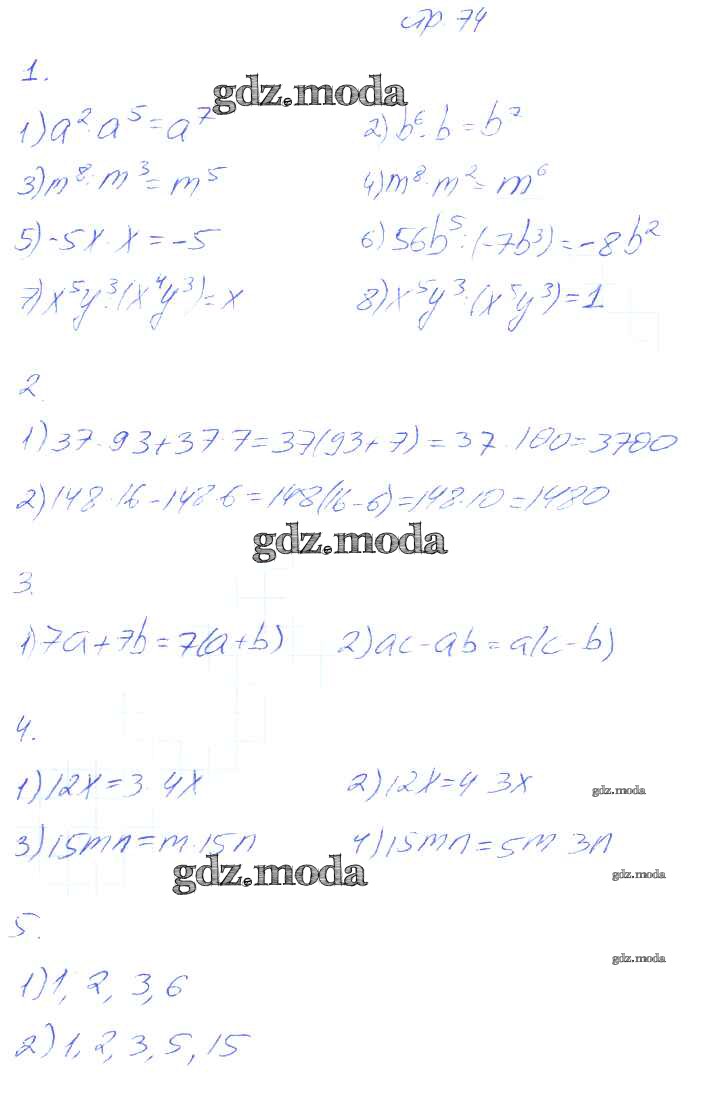 стр. 74
1.
gdz.moda
1) a²·a⁵=a⁷ 2) b⁶·b=b⁷
3) m⁸:m³=m⁵ 4) m⁸:m²=m⁶
5) -5x:x=-5 6) 56b⁵:(-7b³)=-8b²
7) x⁵y³:(x⁴y³)=x 8) x⁵y³:(x⁵y³)=1
2.
1) 37·93+37·7=37(93+7)=37·100=3700
2) 148·16-148·6=148(16-6)=148·10=1480
gdz.moda
3.
1) 7a+7b=7(a+b) 2) ac-ab=a(c-b)
4.
1) 12x=3·4x 2) 12x=4·3x
gdz.moda
3) 15mn=m·15n 4) 15mn=5m·3n
gdz.moda
gdz.moda
5.
gdz.moda
1) 1, 2, 3, 6
2) 1, 2, 3, 5, 15